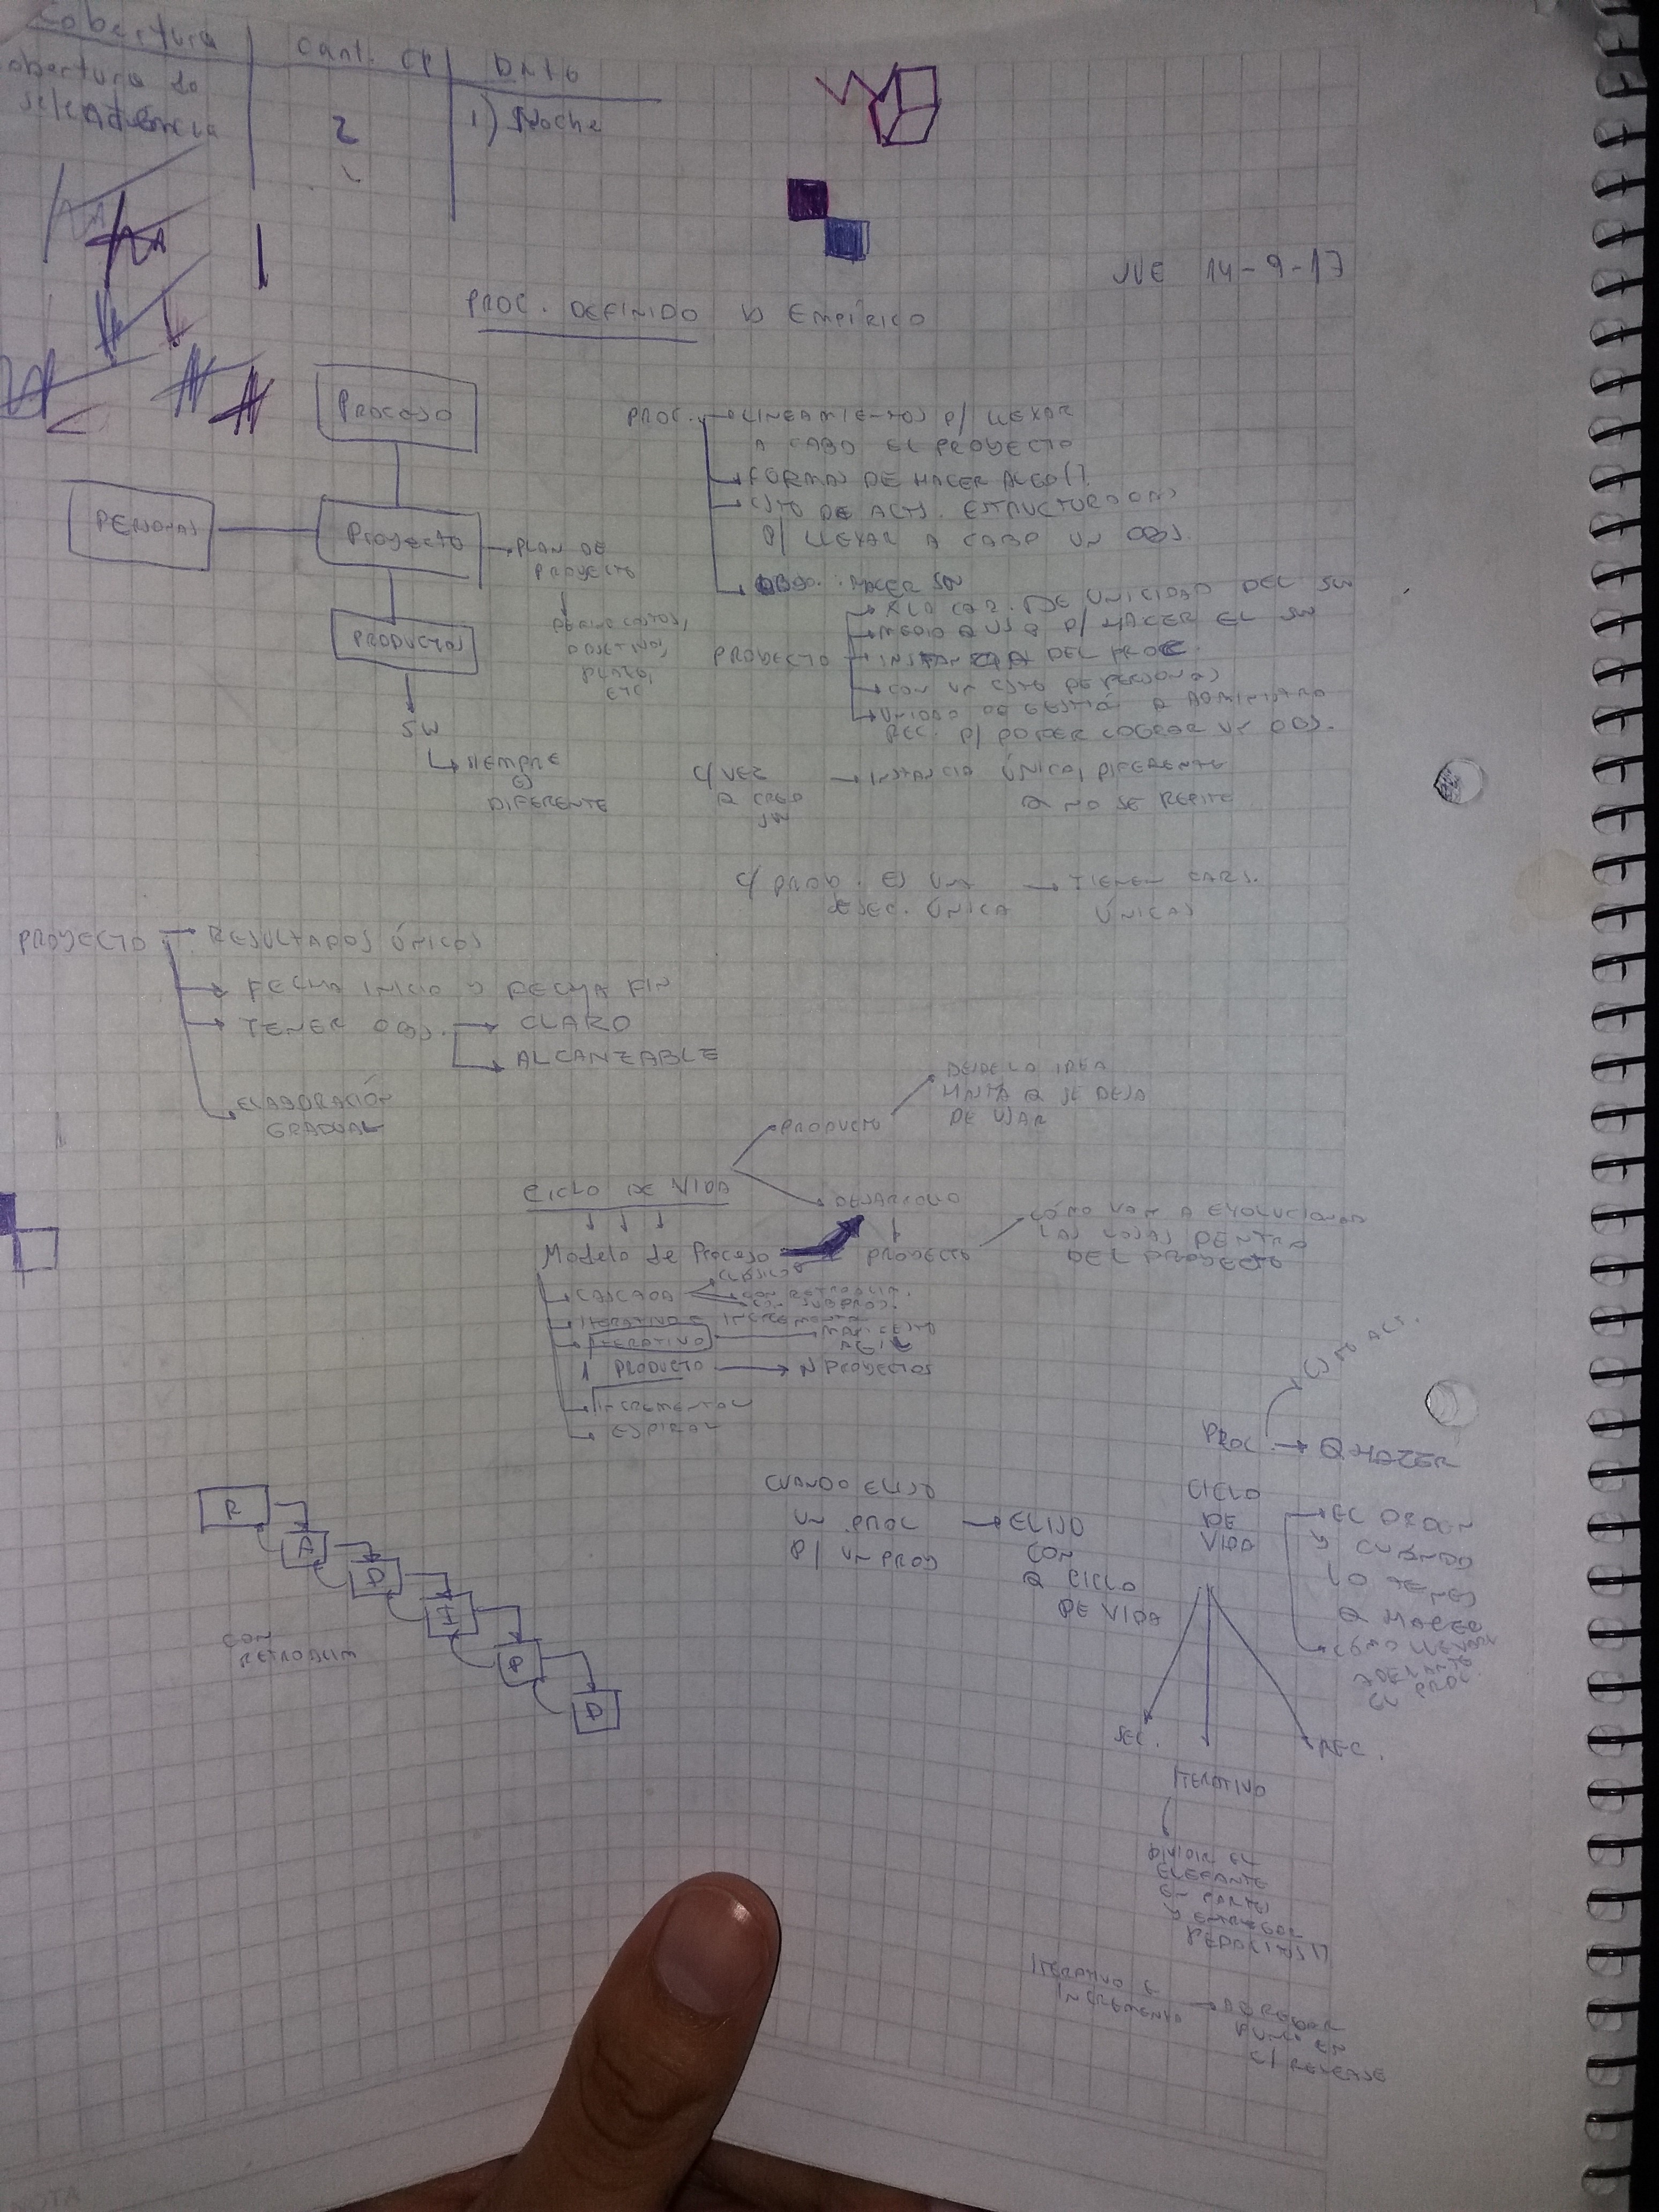 Cobertura | Cant. CP | Dato
2 | 1) Noche
JUE 14-9-17
PROC. DEFINIDO Y EMPÍRICO
PROCESO
PERSONAS
PROYECTO → PLAN DE
PROYECTO
OBJETIVOS,
PLAZO,
ETC
PRODUCTOS
SW
SIEMPRE
ES
DIFERENTE
PROC. → LINEAMIENTOS P/ LLEVAR
A CABO EL PROYECTO
→ FORMAS DE HACER ALGO
→ CJTO DE ACTS. ESTRUCTURADAS
P/ LLEVAR A CABO UN OBJ.
HACER SW
DE UNICIDAD DEL SW
PROYECTO
→ MEDIO Q USO P/ HACER EL SW
→ INSTANCIA DEL PROC.
→ CON UN CJTO DE PERSONAS
→ UNIDAD DE GESTIÓN Q ADMINISTRA
REC. P/ PODER LOGRAR UN OBJ.
C/ VEZ → INSTANCIA ÚNICA, DIFERENTE
Q CREO Q NO SE REPITE
SW
C/ PROY. ES UNA → TIENEN CARS.
EJEC. ÚNICA ÚNICAS
PROYECTO → RESULTADOS ÚNICOS
→ FECHA INICIO Y FECHA FIN
→ TENER OBJ. → CLARO
→ ALCANZABLE
→ ELABORACIÓN
GRADUAL
CICLO DE VIDA
→ PRODUCTO
DESDE LA IDEA
HASTA Q SE DEJA
DE USAR
→ DESARROLLO
PROYECTO
CÓMO VAN A EVOLUCIONAR
LAS COSAS DENTRO
DEL PROYECTO
Modelo de Proceso
→ CASCADA
CLÁSICO
CON RETROALIM.
CON SUBPROY.
→ ITERATIVO E INCREMENTAL
→ ITERATIVO → MANIFIESTO
AGIL
1 PRODUCTO → N PROYECTOS
→ INCREMENTAL
→ ESPIRAL
R
A
D
I
P
D
CON
RETROALIM
CUANDO ELIJO
UN PROC → ELIJO
P/ UN PROY CON
Q CICLO
DE VIDA
ACT.
PROC. → Q HACER
CICLO
DE
VIDA
→ EL ORDEN
Y CUANDO
LO TENES
Q HACER
→ CÓMO LLEVAR
ADELANTE
EL PROC.
SEC.
ITERATIVO
REC.
DIVIDIR EL
ELEFANTE
EN PARTES
Y ENTREGAR
PEDACITOS
ITERATIVO E
INCREMENTAL → AGREGAR
FUNC EN
C/ RELEASE
NOTA